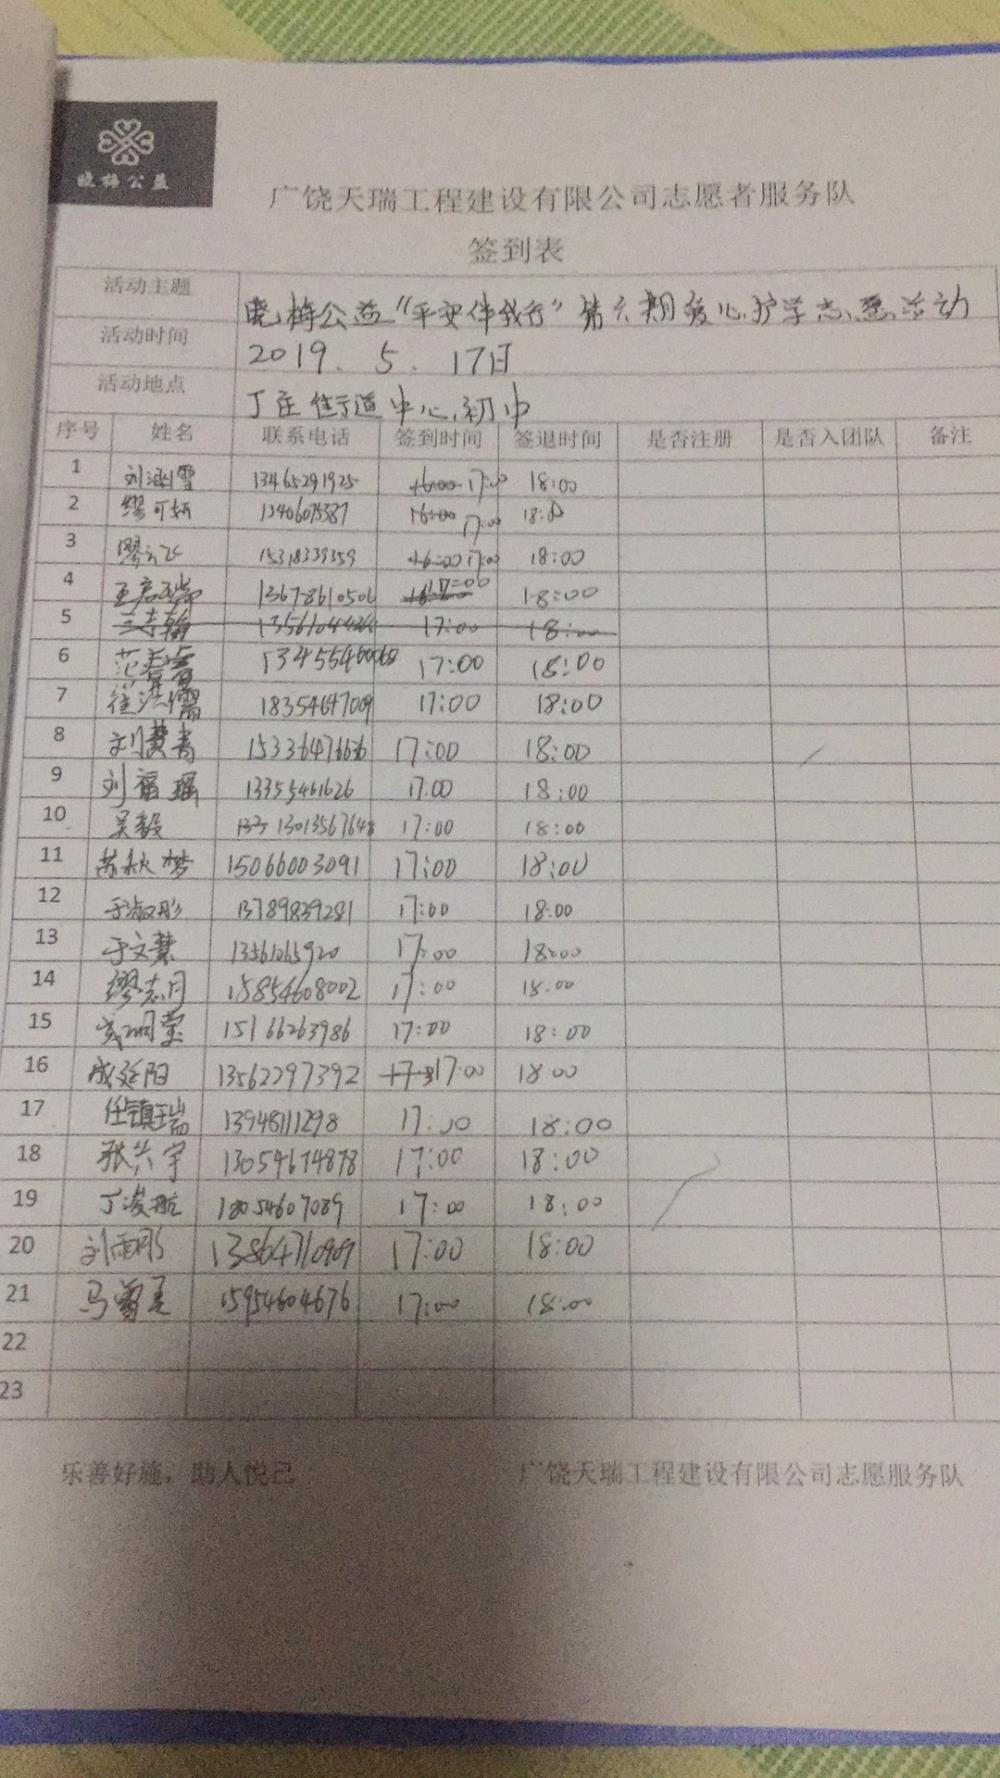 晓梅公益
广饶天瑞工程建设有限公司志愿者服务队
签到表
活动主题 晓梅公益“平安伴我行”第六期爱心护学志愿活动
活动时间 2019. 5. 17日
活动地点 丁庄街道中心初中
序号 姓名 联系电话 签到时间 签退时间 是否注册 是否入团队 备注
1 刘涵雪 13465291925 16:00 17:00 18:00
2 缪可妍 16:00 17:00 18:00
3 缪 15318339359 16:00 17:00 18:00
4 13678610506 17:00 18:00
5 17:00 18:00
6 17:00 18:00
7 18354647009 17:00 18:00
8 15336476636 17:00 18:00
9 刘福瑶 13355461626 17:00 18:00
10 吴毅 13013567648 17:00 18:00
11 苏秋梦 15066003091 17:00 18:00
12 于淑彤 13789839281 17:00 18:00
13 于文慧 13561265920 17:00 18:00
14 缪志月 15854608002 17:00 18:00
15 15166263986 17:00 18:00
16 成廷阳 13562297392 17:00 18:00
17 任镇瑞 13948111298 17:00 18:00
18 张兴宇 13054674878 17:00 18:00
19 丁凌航 18054607089 17:00 18:00
20 刘雨彤 13864710909 17:00 18:00
21 马 15954604676 17:00 18:00
22
23
乐善好施，助人悦己 广饶天瑞工程建设有限公司志愿服务队